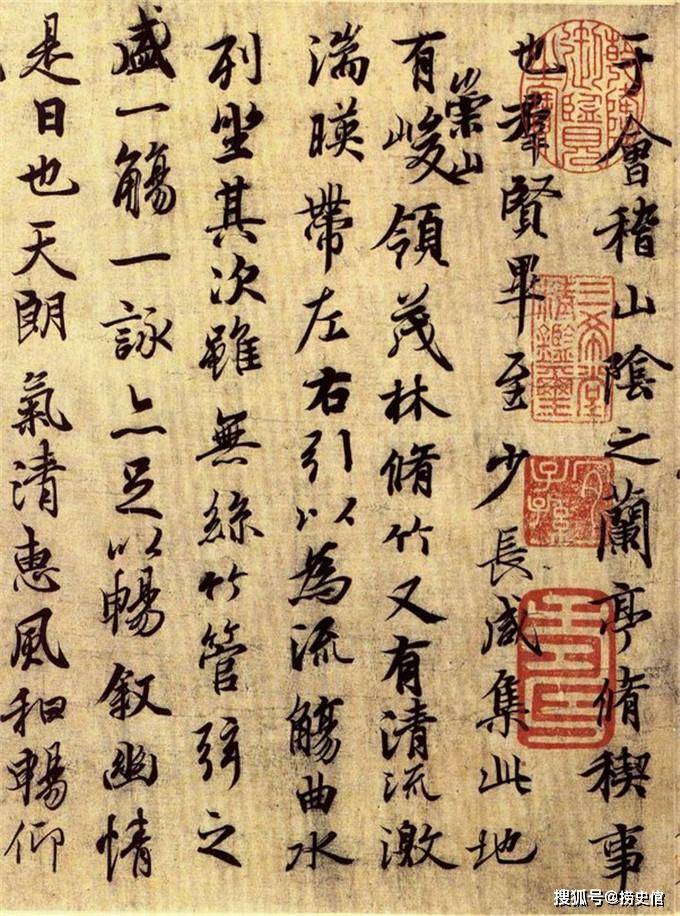 于會稽山陰之蘭亭脩稧事
也羣賢畢至少長咸集此地
有崇山峻領茂林脩竹又有清流激
湍暎帶左右引以為流觴曲水
列坐其次雖無絲竹管弦之
盛一觴一詠亦足以暢敘幽情
是日也天朗氣清惠風和暢仰
三希堂精鑑璽
宜子孫
搜狐号@捞史馆